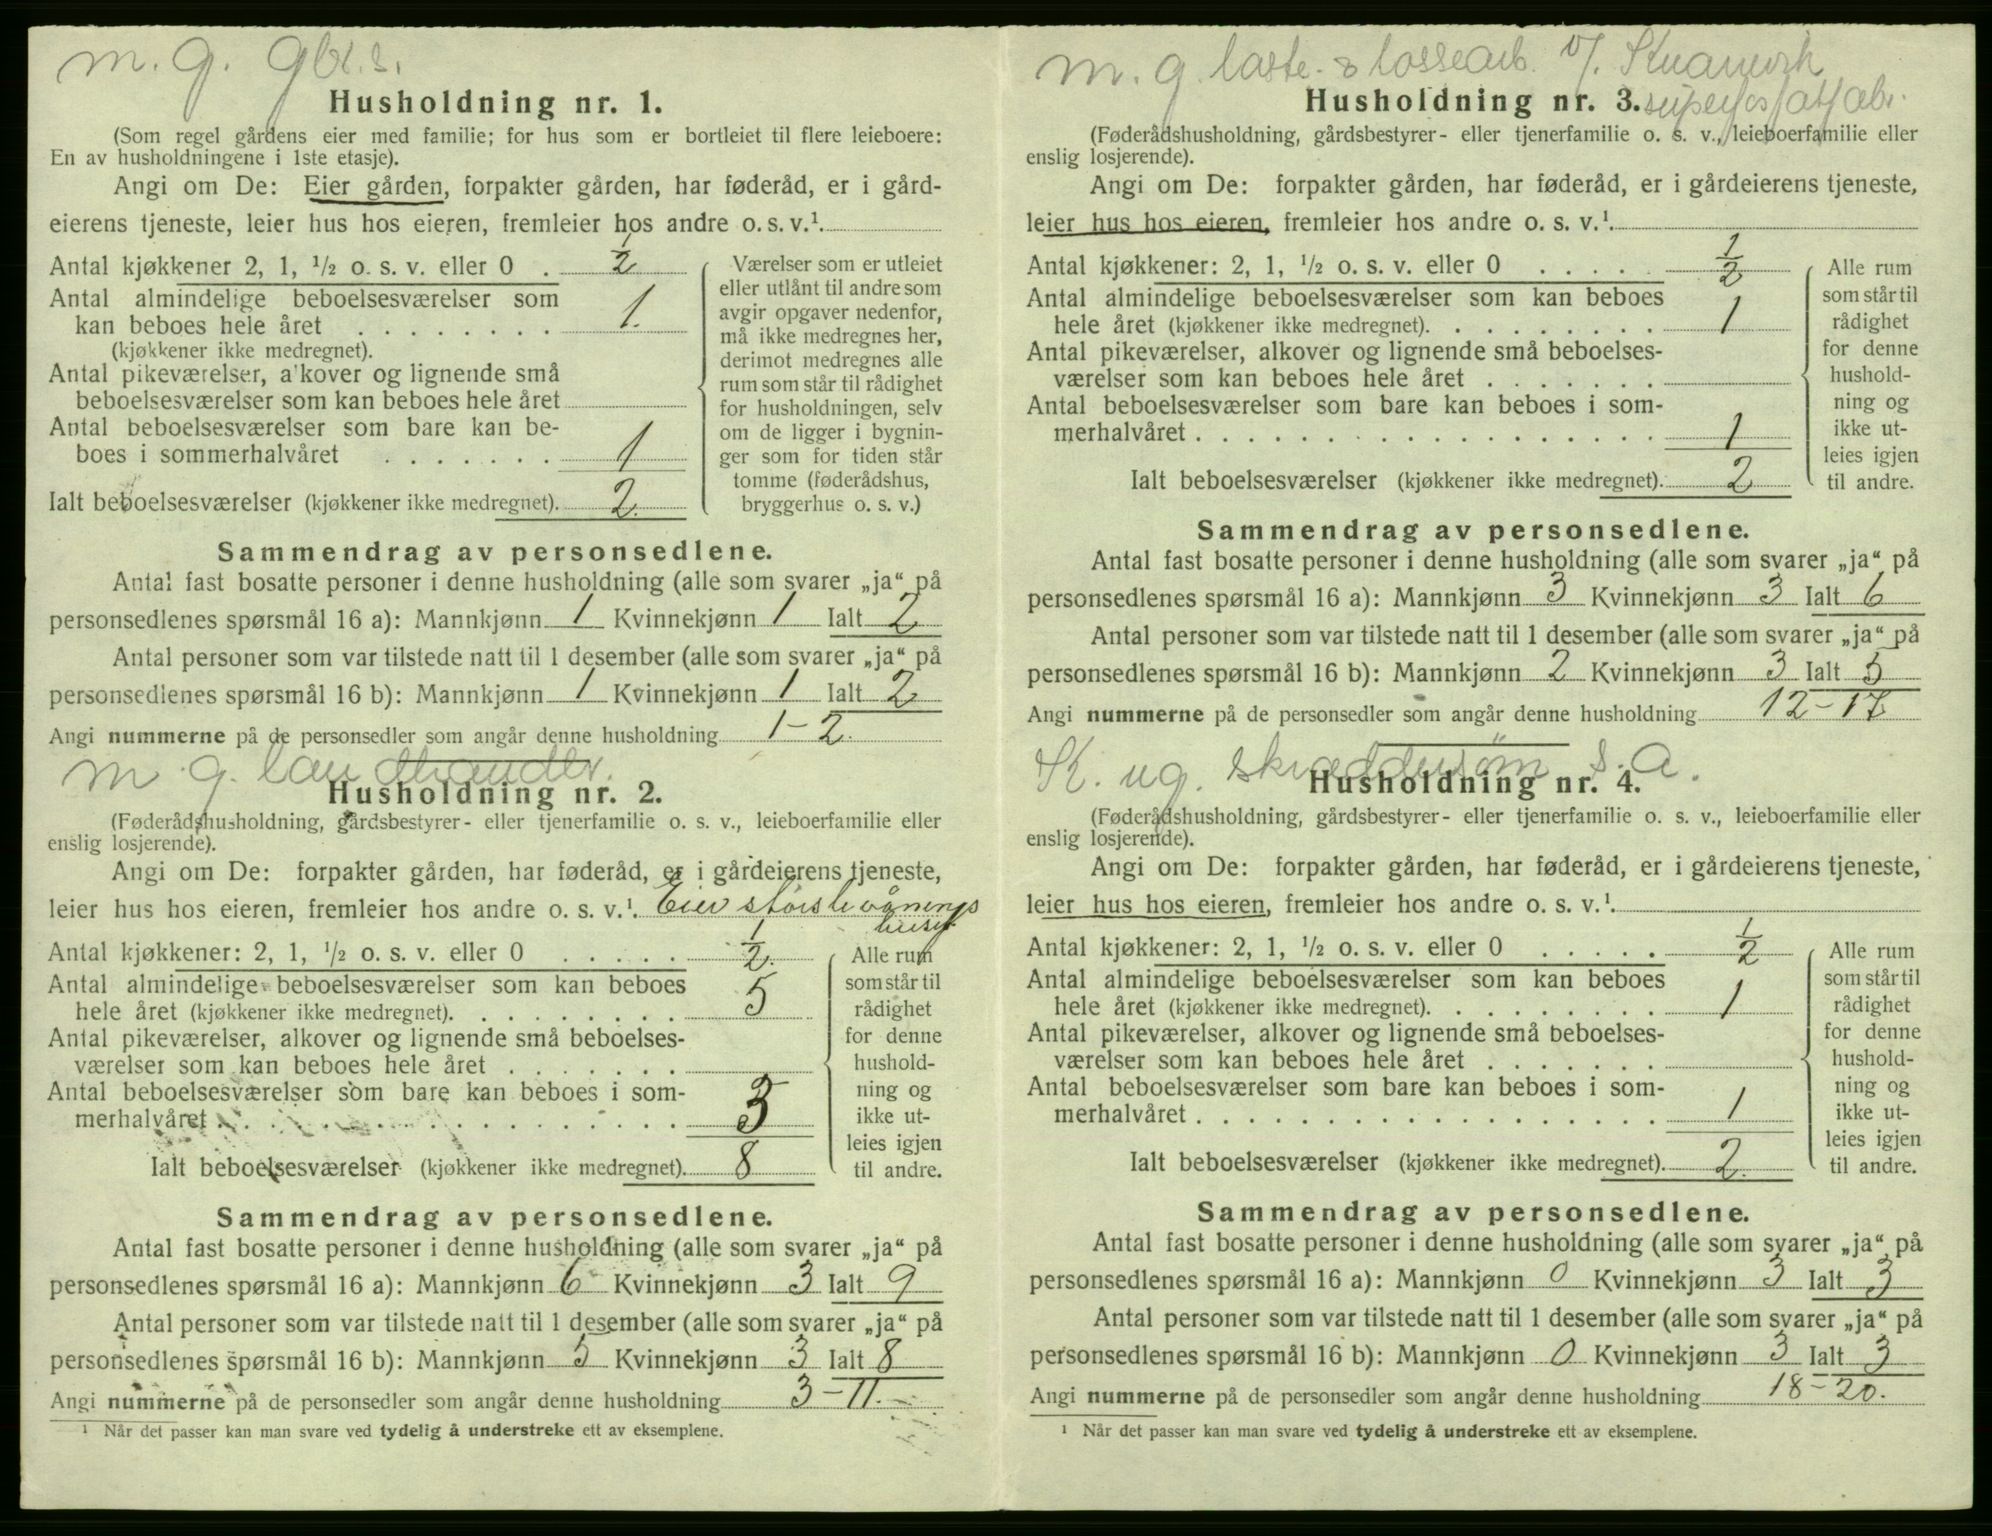 m. g. gbr. s.
Husholdning nr. 1.
(Som regel gårdens eier med familie; for hus som er bortleiet til flere leieboere:
En av husholdningene i 1ste etasje).
Angi om De: Eier gården, forpakter gården, har føderåd, er i gård-
eierens tjeneste, leier hus hos eieren, fremleier hos andre o. s. v.¹
Antal kjøkkener 2, 1, ½ o. s. v. eller 0 . ½
Antal almindelige beboelsesværelser som
kan beboes hele året . . . . . . . . 1.
(kjøkkener ikke medregnet).
Antal pikeværelser, a'kover og lignende små
beboelsesværelser som kan beboes hele året
Antal beboelsesværelser som bare kan be-
boes i sommerhalvåret . . . . . . . 1
Ialt beboelsesværelser (kjøkkener ikke medregnet). 2.
Værelser som er utleiet
eller utlånt til andre som
avgir opgaver nedenfor,
må ikke medregnes her,
derimot medregnes alle
rum som står til rådighet
for husholdningen, selv
om de ligger i bygnin-
ger som for tiden står
tomme (føderådshus,
bryggerhus o. s. v.)
Sammendrag av personsedlene.
Antal fast bosatte personer i denne husholdning (alle som svarer „ja“ på
personsedlenes spørsmål 16 a): Mannkjønn 1 Kvinnekjønn 1 Ialt 2
Antal personer som var tilstede natt til 1 desember (alle som svarer „ja“ på
personsedlenes spørsmål 16 b): Mannkjønn 1 Kvinnekjønn 1 Ialt 2
Angi nummerne på de personsedler som angår denne husholdning 1-2.
m. g. landhandler.
Husholdning nr. 2.
(Føderådshusholdning, gårdsbestyrer- eller tjenerfamilie o. s. v., leieboerfamilie eller
enslig losjerende).
Angi om De: forpakter gården, har føderåd, er i gårdeierens tjeneste,
leier hus hos eieren, fremleier hos andre o. s. v.¹. Eier største vånings
huset
Antal kjøkkener: 2, 1, ½ o. s. v. eller 0 . . . . . ½.
Antal almindelige beboelsesværelser som kan beboes
hele året (kjøkkener ikke medregnet). . . . . . . . . 5
Antal pikeværelser, alkover og lignende små beboelses-
værelser som kan beboes hele året . . . . . . .
Antal beboelsesværelser som bare kan beboes i som-
merhalvåret . . . . . . . . . . . . . . . . . 3
Ialt beboelsesværelser (kjøkkener ikke medregnet). 8
Alle rum
som står til
rådighet
for denne
hushold-
ning og
ikke ut-
leies igjen
til andre.
Sammendrag av personsedlene.
Antal fast bosatte personer i denne husholdning (alle som svarer „ja“ på
personsedlenes spørsmål 16 a): Mannkjønn 6 Kvinnekjønn 3 Ialt 9
Antal personer som var tilstede natt til 1 desember (alle som svarer „ja“ på
personsedlenes spørsmål 16 b): Mannkjønn 5 Kvinnekjønn 3 Ialt 8
Angi nummerne på de personsedler som angår denne husholdning 3-11.
¹ Når det passer kan man svare ved tydelig å understreke ett av eksemplene.
m. g. laste- & lossearb. v/.
superfosfatfabr.
Husholdning nr. 3.
(Føderådshusholdning, gårdsbestyrer- eller tjenerfamilie o. s. v., leieboerfamilie eller
enslig losjerende).
Angi om De: forpakter gården, har føderåd, er i gårdeierens tjeneste,
leier hus hos eieren, fremleier hos andre o. s. v.¹.
Antal kjøkkener: 2, 1, ½ o. s. v. eller 0 . . . . . ½
Antal almindelige beboelsesværelser som kan beboes
hele året (kjøkkener ikke medregnet). . . . . . . . . 1
Antal pikeværelser, alkover og lignende små beboelses-
værelser som kan beboes hele året . . . . . . .
Antal beboelsesværelser som bare kan beboes i som-
merhalvåret . . . . . . . . . . . . . . . . . . 1
Ialt beboelsesværelser (kjøkkener ikke medregnet). 2
Alle rum
som står til
rådighet
for denne
hushold-
ning og
ikke ut-
leies igjen
til andre.
Sammendrag av personsedlene.
Antal fast bosatte personer i denne husholdning (alle som svarer „ja“ på
personsedlenes spørsmål 16 a): Mannkjønn 3 Kvinnekjønn 3 Ialt 6
Antal personer som var tilstede natt til 1 desember (alle som svarer „ja“ på
personsedlenes spørsmål 16 b): Mannkjønn 2 Kvinnekjønn 3 Ialt 5
Angi nummerne på de personsedler som angår denne husholdning 12-17
K. ug. skræddersøm s. a.
Husholdning nr. 4.
(Føderådshusholdning, gårdsbestyrer- eller tjenerfamilie o. s. v., leieboerfamilie eller
enslig losjerende).
Angi om De: forpakter gården, har føderåd, er i gårdeierens tjeneste,
leier hus hos eieren, fremleier hos andre o. s. v.¹.
Antal kjøkkener: 2, 1, ½ o. s. v. eller 0 . . . . . ½
Antal almindelige beboelsesværelser som kan beboes
hele året (kjøkkener ikke medregnet). . . . . . . . . 1
Antal pikeværelser, alkover og lignende små beboelses-
værelser som kan beboes hele året . . . . . . .
Antal beboelsesværelser som bare kan beboes i som-
merhalvåret . . . . . . . . . . . . . . . . . . 1
Ialt beboelsesværelser (kjøkkener ikke medregnet). 2.
Alle rum
som står til
rådighet
for denne
hushold-
ning og
ikke ut-
leies igjen
til andre.
Sammendrag av personsedlene.
Antal fast bosatte personer i denne husholdning (alle som svarer „ja“ på
personsedlenes spørsmål 16 a): Mannkjønn 0 Kvinnekjønn 3 Ialt 3
Antal personer som var tilstede natt til 1 desember (alle som svarer „ja“ på
personsedlenes spørsmål 16 b): Mannkjønn 0 Kvinnekjønn 3 Ialt 3
Angi nummerne på de personsedler som angår denne husholdning 18-20.
¹ Når det passer kan man svare ved tydelig å understreke ett av eksemplene.